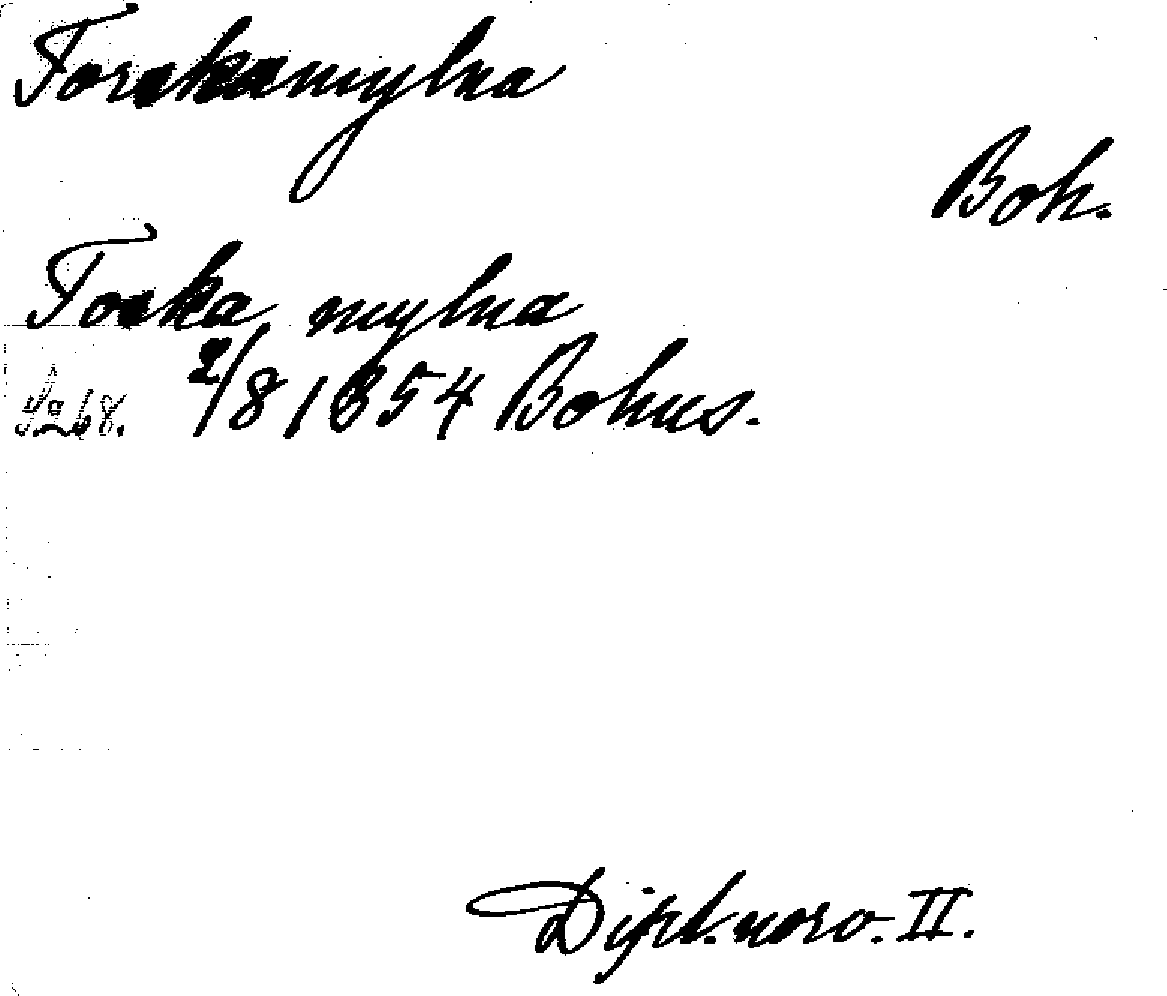 Torskamylna
Boh.
Toska mylna
s. 268. 2/8 1354 Bohus.
Dipl. norv. II.